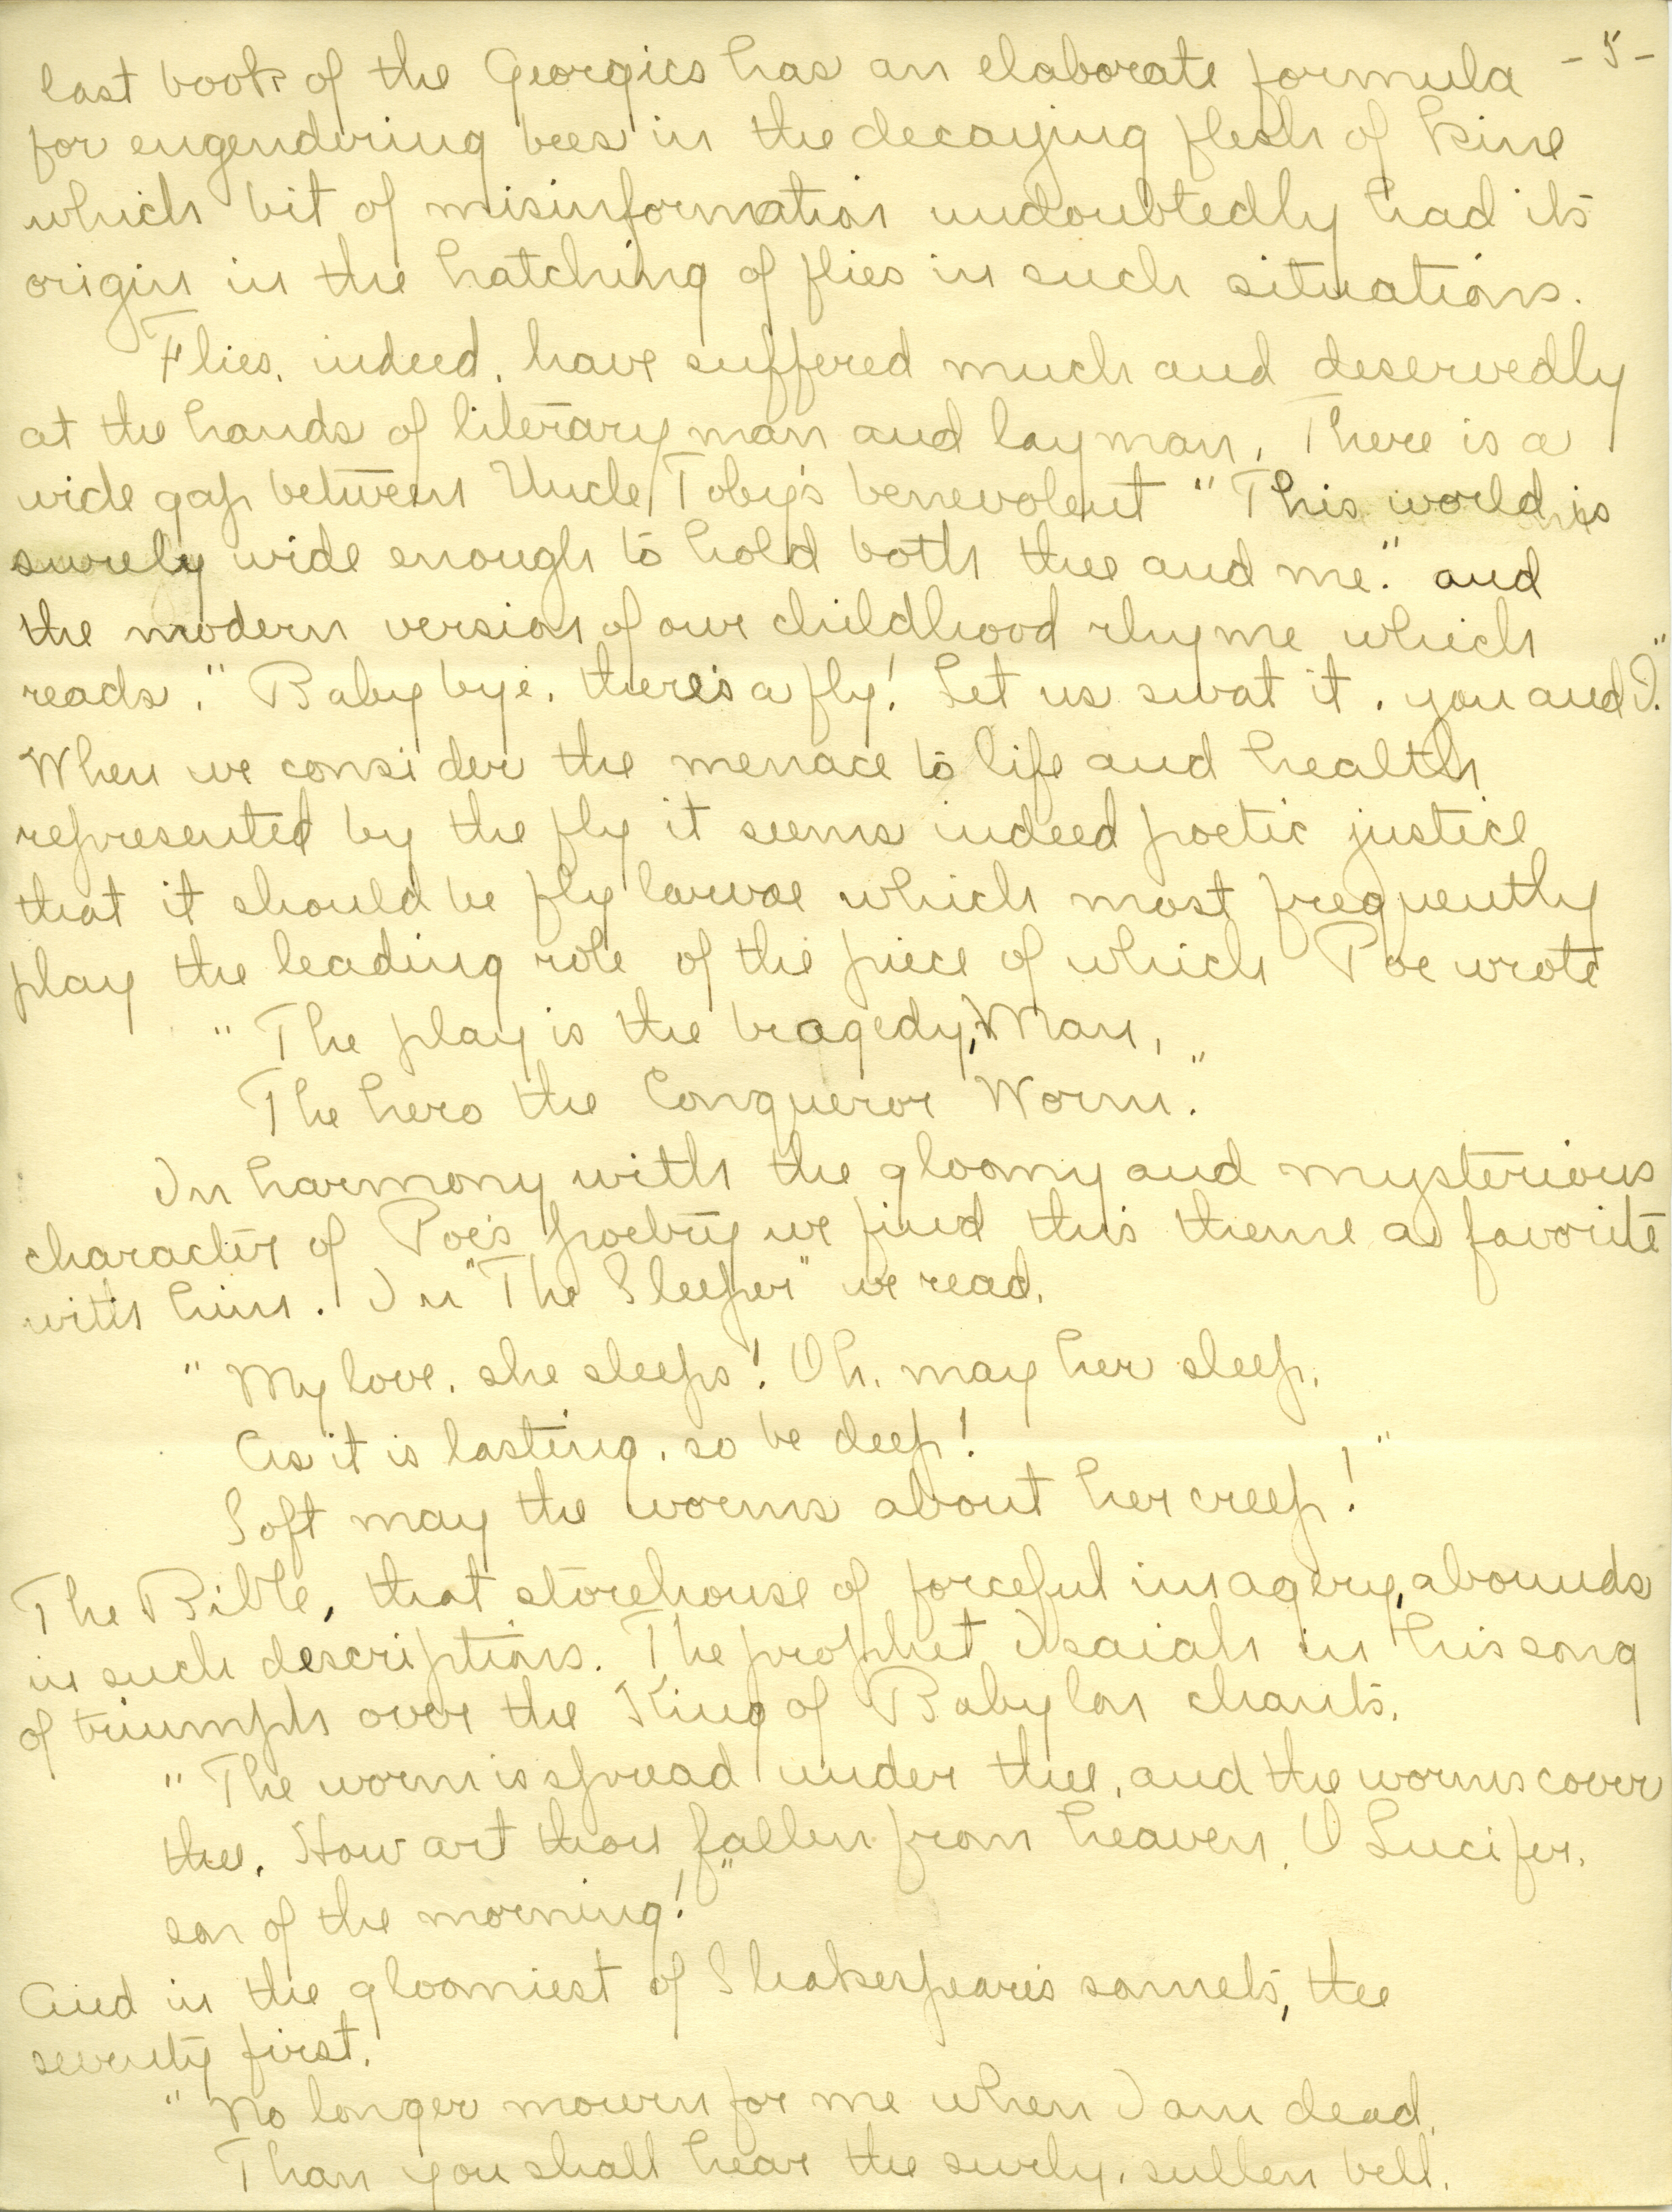 -5-
last book of the Georgics has an elaborate formula
for engendering bees in the decaying flesh of kine
which bit of misinformation undoubtedly had its
origin in the hatching of flies in such situations.
Flies, indeed, have suffered much and deservedly
at the hands of literary man and layman. There is a
wide gap between Uncle Toby's benevolent "This world is
surely wide enough to hold both thee and me." and
the modern version of our childhood rhyme which
reads, "Baby bye, there's a fly! Let us swat it, you and I."
When we consider the menace to life and health
represented by the fly it seems indeed poetic justice
that it should be fly larvae which most frequently
play the leading role of the piece of which Poe wrote
"The play is the tragedy, Man,
The hero the Conqueror Worm."
In harmony with the gloomy and mysterious
character of Poe's poetry we find this theme a favorite
with him. In "The Sleeper" we read,
"My love, she sleeps! Oh, may her sleep,
As it is lasting, so be deep!
Soft may the worms about her creep!"
The Bible, that storehouse of forceful imagery, abounds
in such descriptions. The prophet Isaiah in his song
of triumph over the King of Babylon chants,
"The worm is spread under thee, and the worms cover
thee. How art thou fallen from heaven, O Lucifer,
son of the morning!"
And in the gloomiest of Shakespeare's sonnets, the
seventy first,
"No longer mourn for me when I am dead,
Than you shall hear the surly, sullen bell,